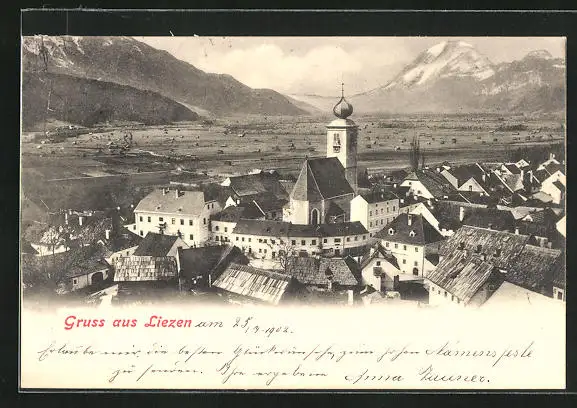 Gruss aus Liezen am 25/3 1902.
Erlaube mir die besten Glückwünsche zum hohen Namensfeste
zu senden. Ihre ergebene Anna